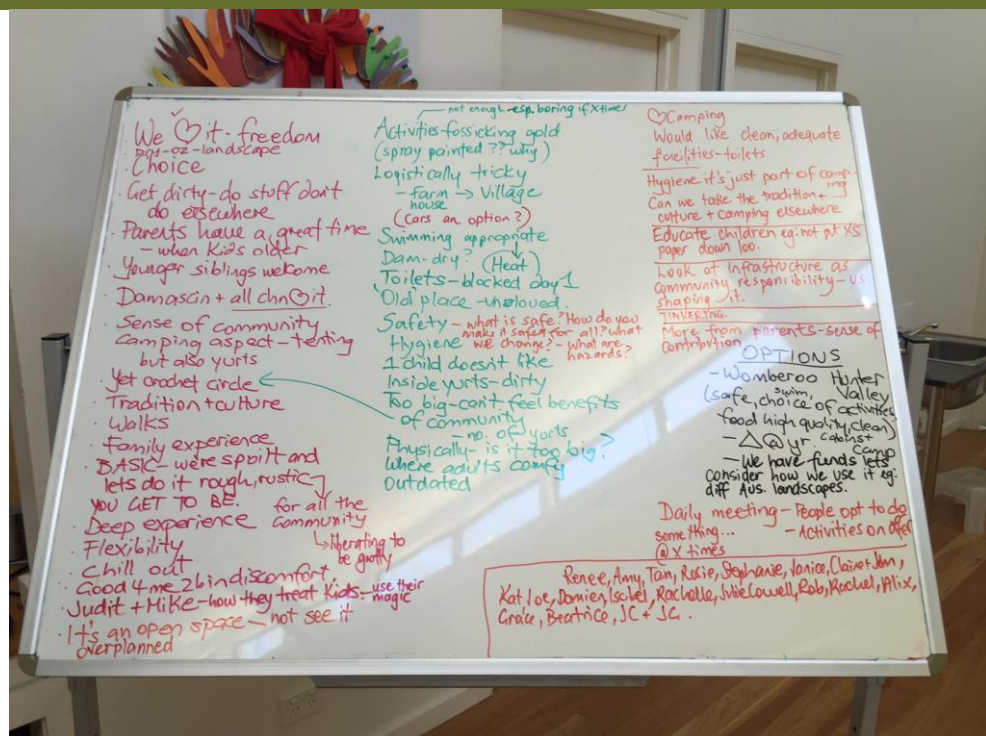 We ♡ it - freedom
- oz - landscape
· Choice
· Get dirty - do stuff don't
do elsewhere
· Parents have a great time
- when kids older
· Younger siblings welcome
· Damascin + all chn ♡ it.
· Sense of community
camping aspect - tenting
but also yurts
· Yet crochet circle
· Tradition + culture
· Walks
· Family experience
· BASIC - we're spoilt and
lets do it rough, rustic
YOU GET TO BE.
for all the
community
↳ liberating to
be grotty
· Deep experience
· Flexibility
· Chill out
· Good 4 me 2 b in discomfort
· Judit + Mike - how they treat kids - use their
magic
· It's an open space - not see it
overplanned
not enough - esp. boring if X times
Activities - fossicking gold
(spray painted ?? why)
Logistically tricky
- farm → Village
house
(cars an option?)
Swimming appropriate
Dam - dry? (Heat)
Toilets - blocked day 1
'Old' place - unloved.
Safety - what is safe? How do you
make it safer for all? what
we change? - what are
hazards?
Hygiene
1 child doesn't like
Inside yurts - dirty
Too big - can't feel benefits
of community
- no. of yurts
Physically - is it too big?
Where adults comfy
Outdated
♡ Camping
Would like clean, adequate
facilities - toilets
Hygiene it's just part of camping
Can we take the tradition +
culture + camping elsewhere
Educate children eg. not put XS
paper down loo.
Look at infrastructure as
community responsibility - us
shaping it.
TINKERING.
More from parents - sense of
contribution
OPTIONS
- Womberoo Hunter
Valley
(safe, swim, choice of activities
food high quality, clean)
- △ @ yr. Camp
- We have funds lets
consider how we use it eg.
diff Aus. landscapes.
Daily meeting - People opt to do
something... - Activities on offer
@ X times
Renee, Amy, Tam, Rosie, Stephanie, Janice, Claire + John,
Kat, Joe, Damien, Isobel, Rachelle, Julie Cowell, Rob, Rachel, Alix,
Grace, Beatrice, JC + JG.